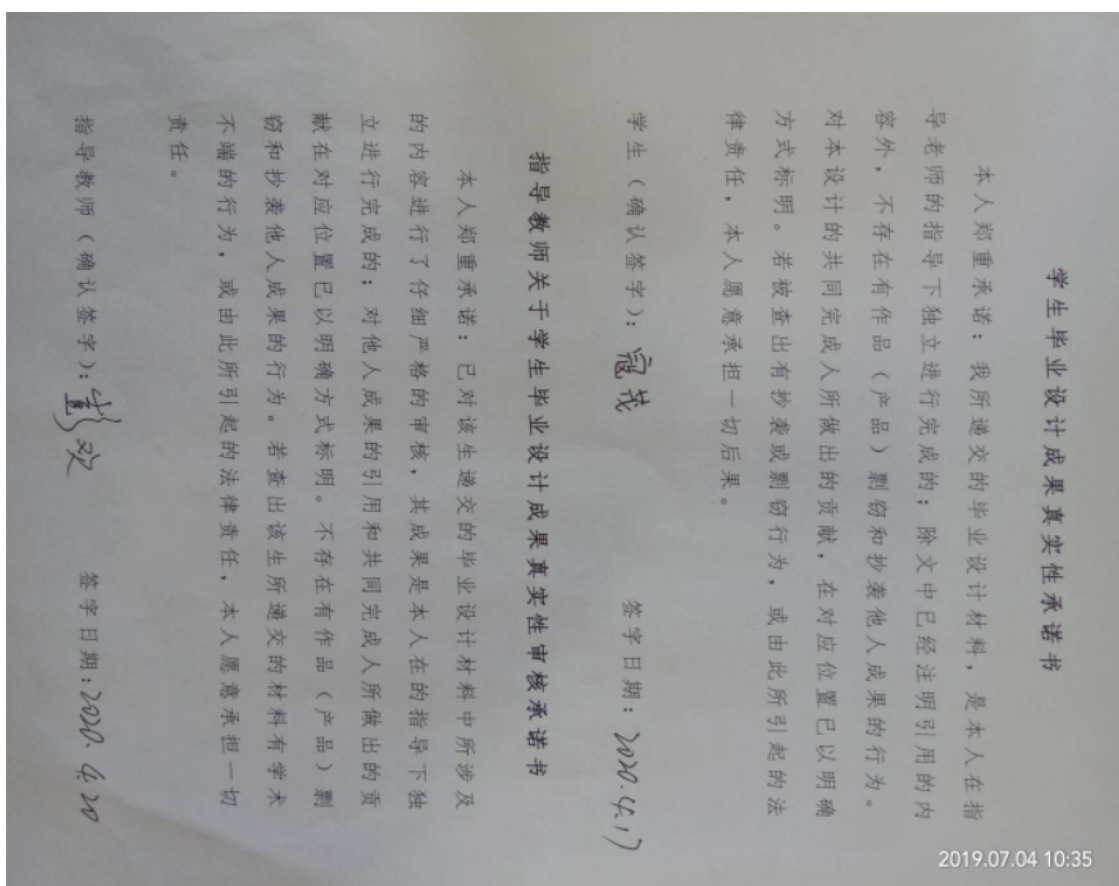 学生毕业设计成果真实性承诺书
本人郑重承诺：我所递交的毕业设计材料，是本人在指
导老师的指导下独立进行完成的；除文中已经注明引用的内
容外，不存在有作品（产品）剽窃和抄袭他人成果的行为。
对本设计的共同完成人所做出的贡献，在对应位置已以明确
方式标明。若被查出有抄袭或剽窃行为，或由此所引起的法
律责任，本人愿意承担一切后果。
学生（确认签字）：寇茂 签字日期：2020.4.17
指导教师关于学生毕业设计成果真实性审核承诺书
本人郑重承诺：已对该生递交的毕业设计材料中所涉及
的内容进行了仔细严格的审核，其成果是本人在的指导下独
立进行完成的；对他人成果的引用和共同完成人所做出的贡
献在对应位置已以明确方式标明。不存在有作品（产品）剽
窃和抄袭他人成果的行为。若查出该生所递交的材料有学术
不端的行为，或由此所引起的法律责任，本人愿意承担一切
责任。
指导教师（确认签字）： 签字日期：2020.4.20
2019.07.04 10:35